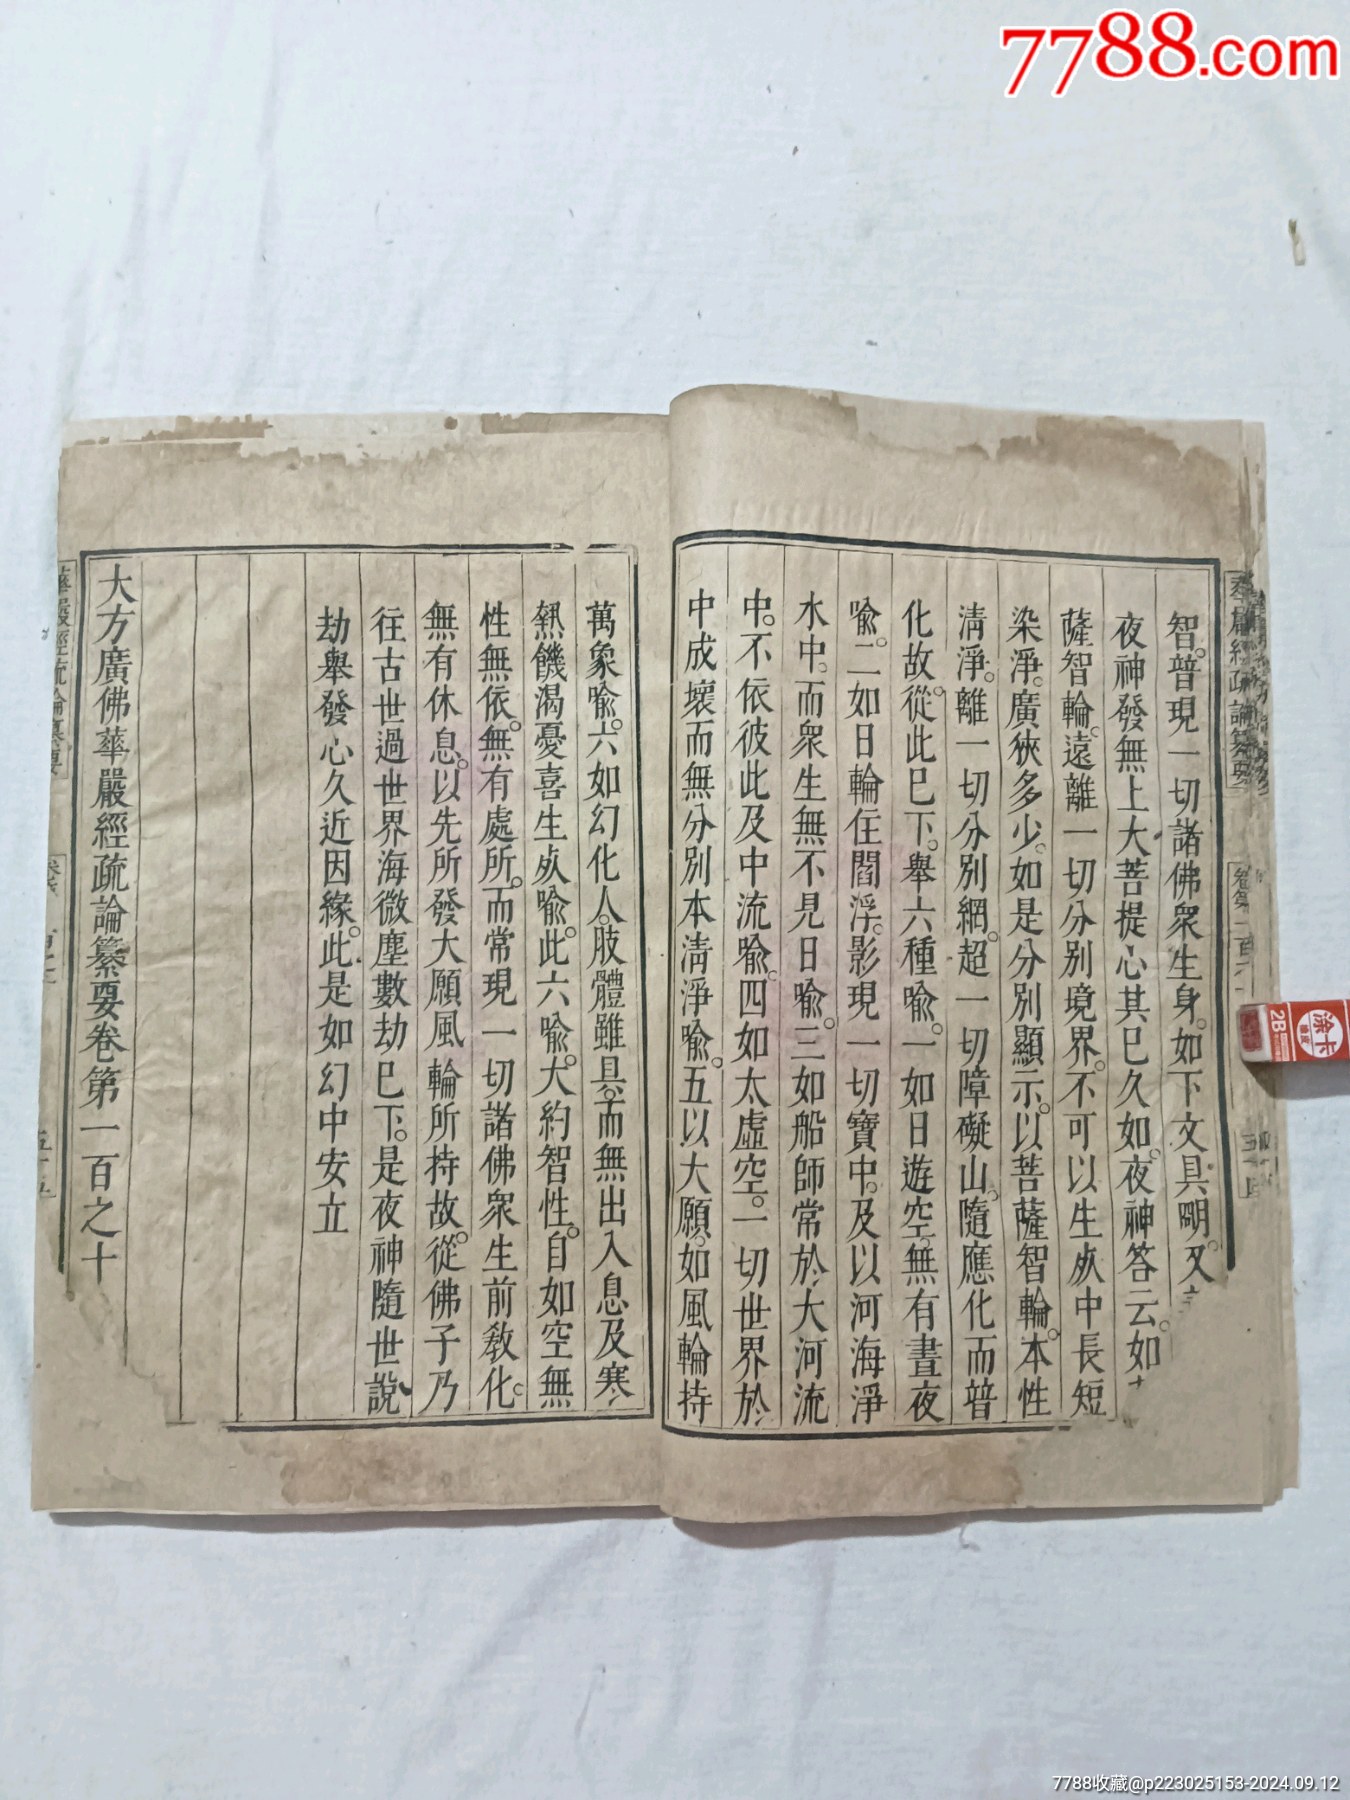 7788.com
智。普現一切諸佛衆生身。如下文具明。又
夜神發無上大菩提心其巳久如。夜神答云。如
薩智輪。遠離一切分別境界。不可以生死中長短
染淨。廣狹多少。如是分別顯示。以菩薩智輪。本性
清淨。離一切分別網。超一切障礙山。隨應化而普
化故。從此巳下。舉六種喻。一如日遊空。無有晝夜
喻。二如日輪住閻浮。影現一切寶中。及以河海淨
水中。而衆生無不見日喻。三如船師常於大河流
中。不依彼此及中流喻。四如太虛空。一切世界於
中成壞而無分別本清淨喻。五以大願。如風輪持
萬象喻。六如幻化人。肢體雖具。而無出入息及寒
熱饑渴憂喜生死喻。此六喻。大約智性。自如空無
性無依。無有處所。而常現一切諸佛衆生前教化。
無有休息。以先所發大願風輪所持故。從佛子乃
往古世過世界海微塵數劫巳下。是夜神隨世說
劫舉發心久近因緣。此是如幻中安立
大方廣佛華嚴經疏論纂要卷第一百之十
華嚴經疏論纂要
五十五
2B
涂卡
7788收藏@p223025153-2024.09.12